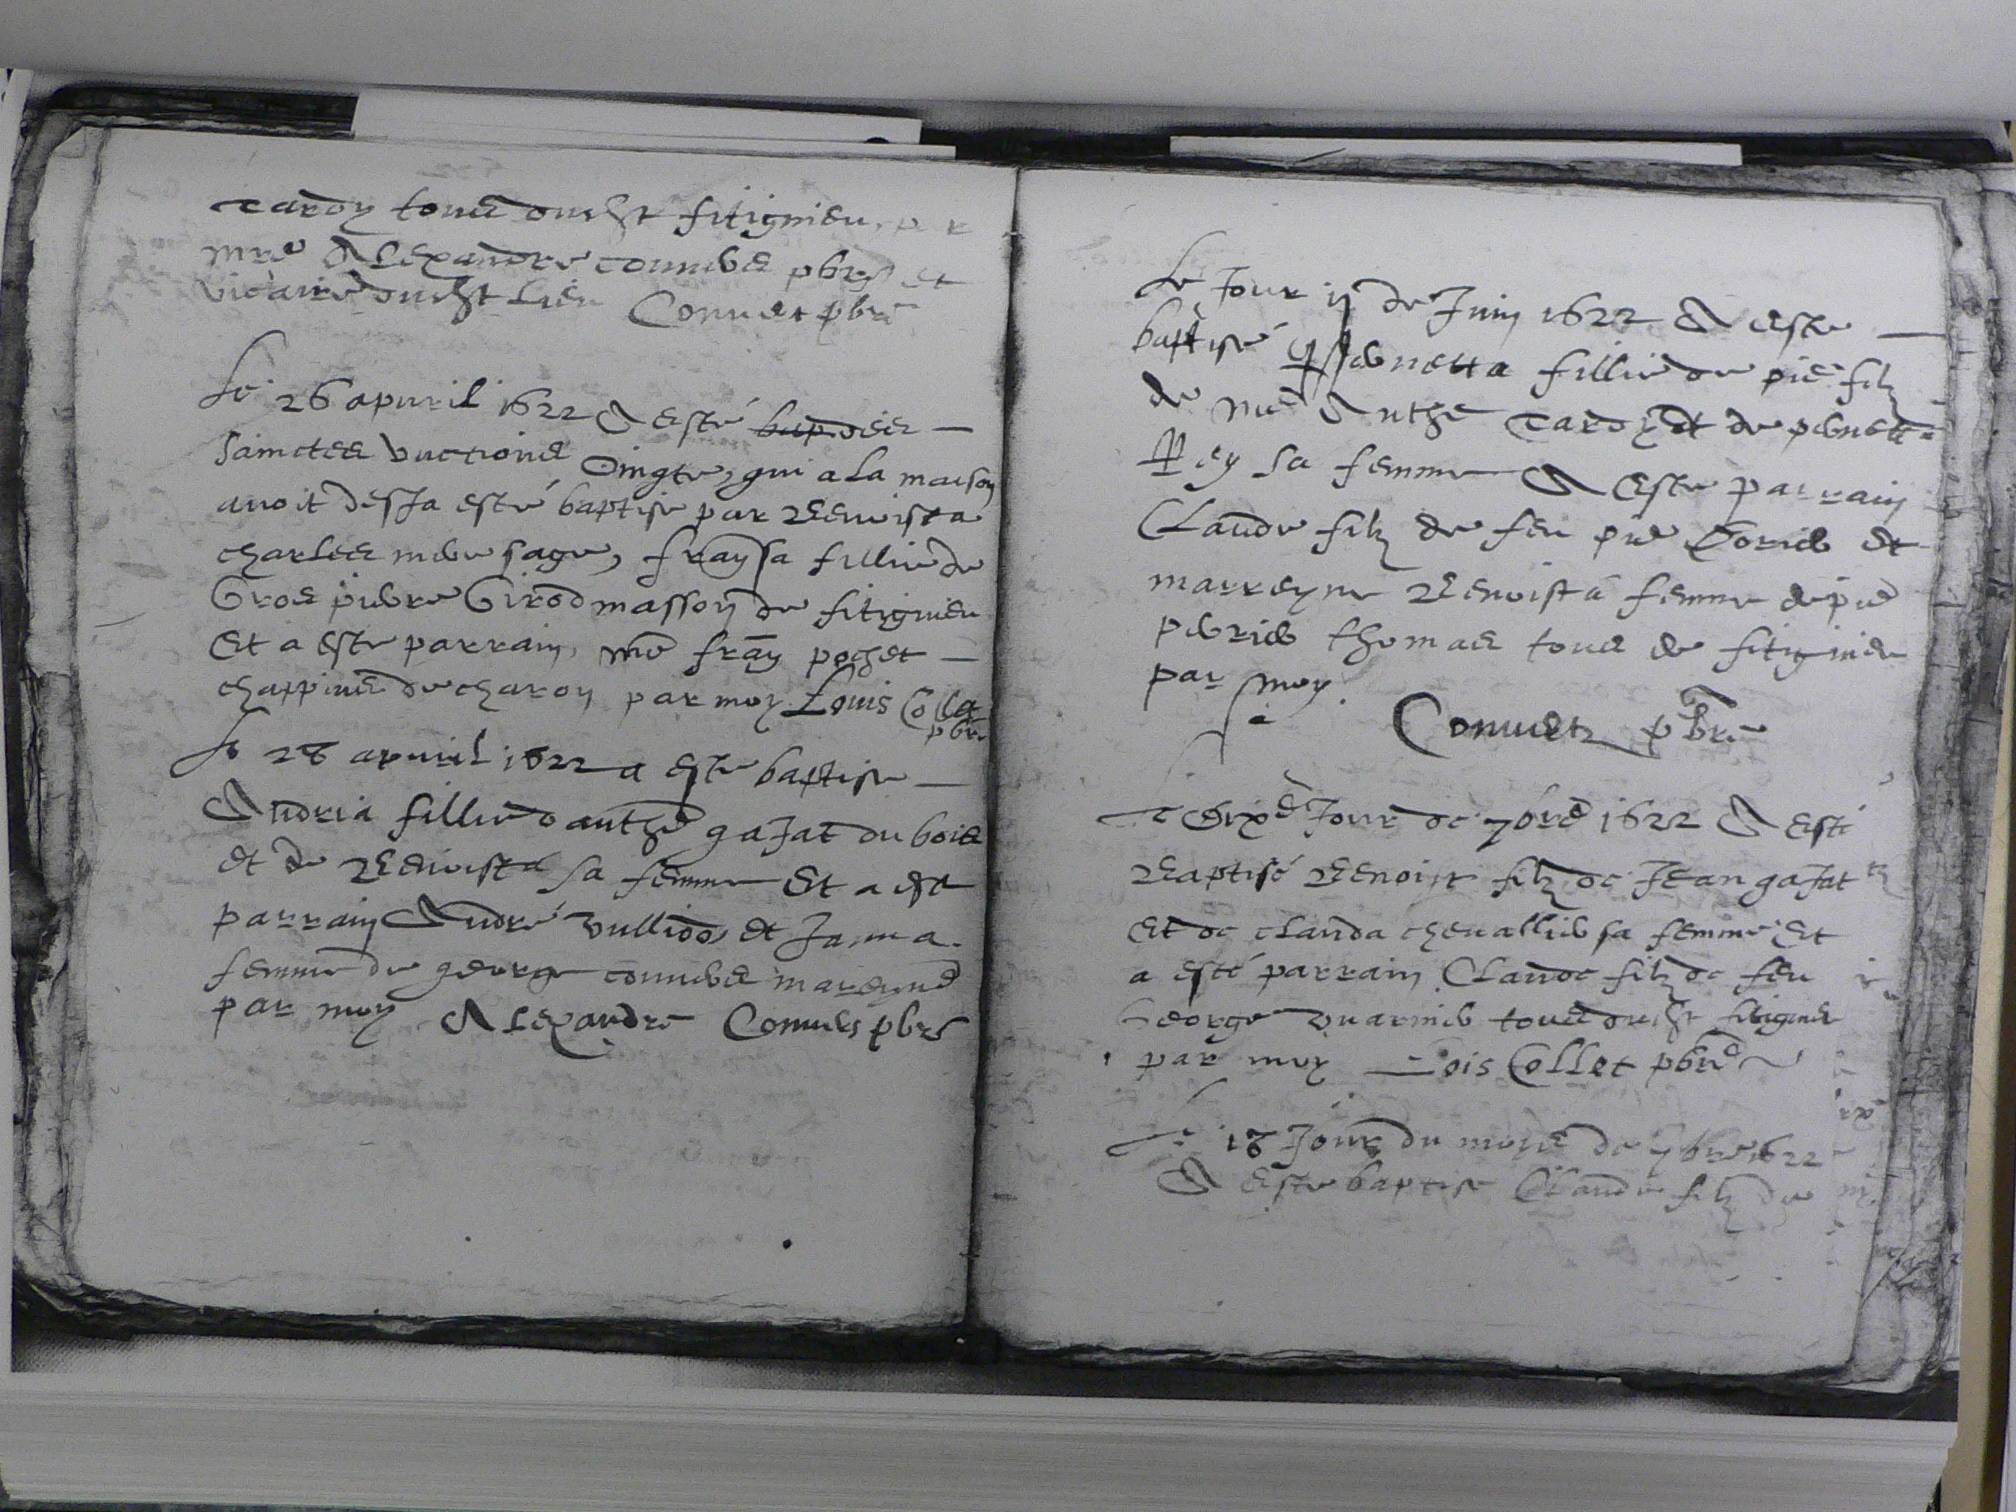 Tardy tous dudict fitignieu, p r
mre Alexandre convers pbre et
vicaire dudict lieu Convers pbre
Le 26 apuril 1622 A esté bap des
sainctes unctions Oingte, qui a la maison
avoit desJa esté baptisé par Benoista
charles mere sage, fraysa fillie de
Gros pierre Girod masson de fitignieu
Et a este parrain, mre fray pochet
chappius de charoy par moy Louis Colle
pbre
Le 28 apuril 1622 a este baptise
Andria fillie d'anthe gaJat du bois
et de Benoista sa femme Et a este
parrain André vulliod, et Janna
femme de george convers mareyne
par moy Alexandre Convers pbre
Le Jour ij de Juin 1622 A este
baptisé pernetta fillie de pie filz
de me Anthe Tardy et de pernette
Rey sa femme A Este parrain
Claude filz de feu pie et
marreyne Benoista femme de pie
perrier thomas tous de fitignieu
par moy
Convers pbre
Le dixe Jour de 7bre 1622 A esté
Baptisé Benoist filz de Jean gaJat
Et de clauda chevallier sa femme Et
a esté parrain Claude filz de feu
George vuarnier tous dudict fitignieu
par moy Lois Collet pbre
Le 18 Jour du moys de 7bre 1622
A este baptise Claude filz de